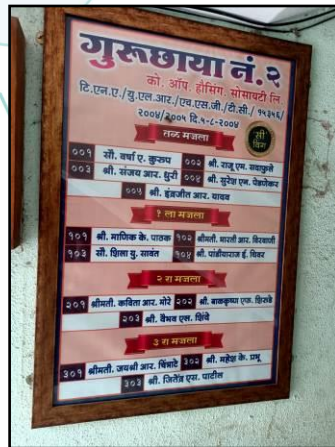 गुरुछाया नं.२
को. ऑप. हौसिंग. सोसायटी लि.
टि.एन.ए./यु.एल.आर./एच.एस.जी/टी.सी./ १५३५६/
२००४/२००५ दि.५-८-२००४
तळ मजला
सी विंग
००१ सौ. वर्षा ए. कुरुप ००२ श्री. राजू एम. सदाफुले
००३ श्री. संजय आर. धुरी ००४ श्री. सुरेश एन. पेडणेकर
००५ श्री. इंद्रजीत आर. यादव
१ ला मजला
१०१ श्री. माणिक के. पाठक १०२ श्रीमती. भारती आर. विरवाणी
१०३ सौ. शिला यु. सावंत १०४ श्री. पांडीयाराज ई. थिवर
२ रा मजला
२०१ श्रीमती. कविता आर. मोरे २०२ श्री. बाळकृष्ण एफ. शिरसे
२०३ श्री. वैभव एस. शिंदे
३ रा मजला
३०१ श्रीमती. जयश्री आर. चिंबाटे ३०२ श्री. महेश के. प्रभू
३०३ श्री. जितेंद्र एस. पाटील